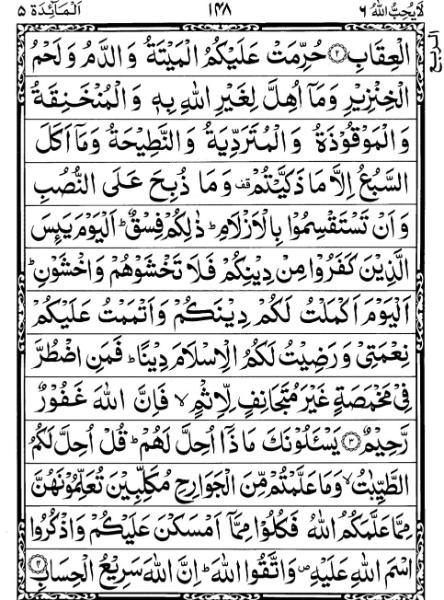 لَا يُحِبُّ اللهُ ٦ ١٤٨ اَلْمَآئِدَة ٥
الربع
الْعِقَابِ ۟﴿۲﴾ حُرِّمَتْ عَلَيْكُمُ الْمَيْتَةُ وَ الدَّمُ وَ لَحْمُ
الْخِنْزِيْرِ وَ مَاۤ اُهِلَّ لِغَيْرِ اللهِ بِهٖ وَ الْمُنْخَنِقَةُ
وَ الْمَوْقُوْذَةُ وَ الْمُتَرَدِّيَةُ وَ النَّطِيْحَةُ وَ مَاۤ اَكَلَ
السَّبُعُ اِلَّا مَا ذَكَّيْتُمْ قف وَ مَا ذُبِحَ عَلَى النُّصُبِ
وَ اَنْ تَسْتَقْسِمُوْا بِالْاَزْلَامِ ؕ ذٰلِكُمْ فِسْقٌ ؕ اَلْيَوْمَ يَىِٕسَ
الَّذِيْنَ كَفَرُوْا مِنْ دِيْنِكُمْ فَلَا تَخْشَوْهُمْ وَ اخْشَوْنِ ؕ
اَلْيَوْمَ اَكْمَلْتُ لَكُمْ دِيْنَكُمْ وَ اَتْمَمْتُ عَلَيْكُمْ
نِعْمَتِيْ وَ رَضِيْتُ لَكُمُ الْاِسْلَامَ دِيْنًا ؕ فَمَنِ اضْطُرَّ
فِيْ مَخْمَصَةٍ غَيْرَ مُتَجَانِفٍ لِّاِثْمٍ ۙ فَاِنَّ اللهَ غَفُوْرٌ
رَّحِيْمٌ ﴿۳﴾ يَسْـَٔلُوْنَكَ مَاذَاۤ اُحِلَّ لَهُمْ ؕ قُلْ اُحِلَّ لَكُمُ
الطَّيِّبٰتُ ۙ وَ مَا عَلَّمْتُمْ مِّنَ الْجَوَارِحِ مُكَلِّبِيْنَ تُعَلِّمُوْنَهُنَّ
مِمَّا عَلَّمَكُمُ اللهُ فَكُلُوْا مِمَّاۤ اَمْسَكْنَ عَلَيْكُمْ وَ اذْكُرُوا
اسْمَ اللهِ عَلَيْهِ ۪ وَ اتَّقُوا اللهَ ؕ اِنَّ اللهَ سَرِيْعُ الْحِسَابِ ﴿۴﴾